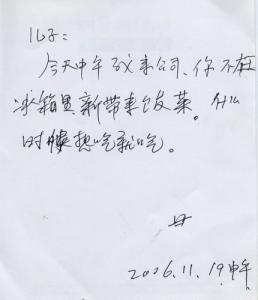 儿子：
今天中午我来公司、你不在
冰箱里新带来饭菜。什么
时候想吃就吃。
母
2006.11.19中午